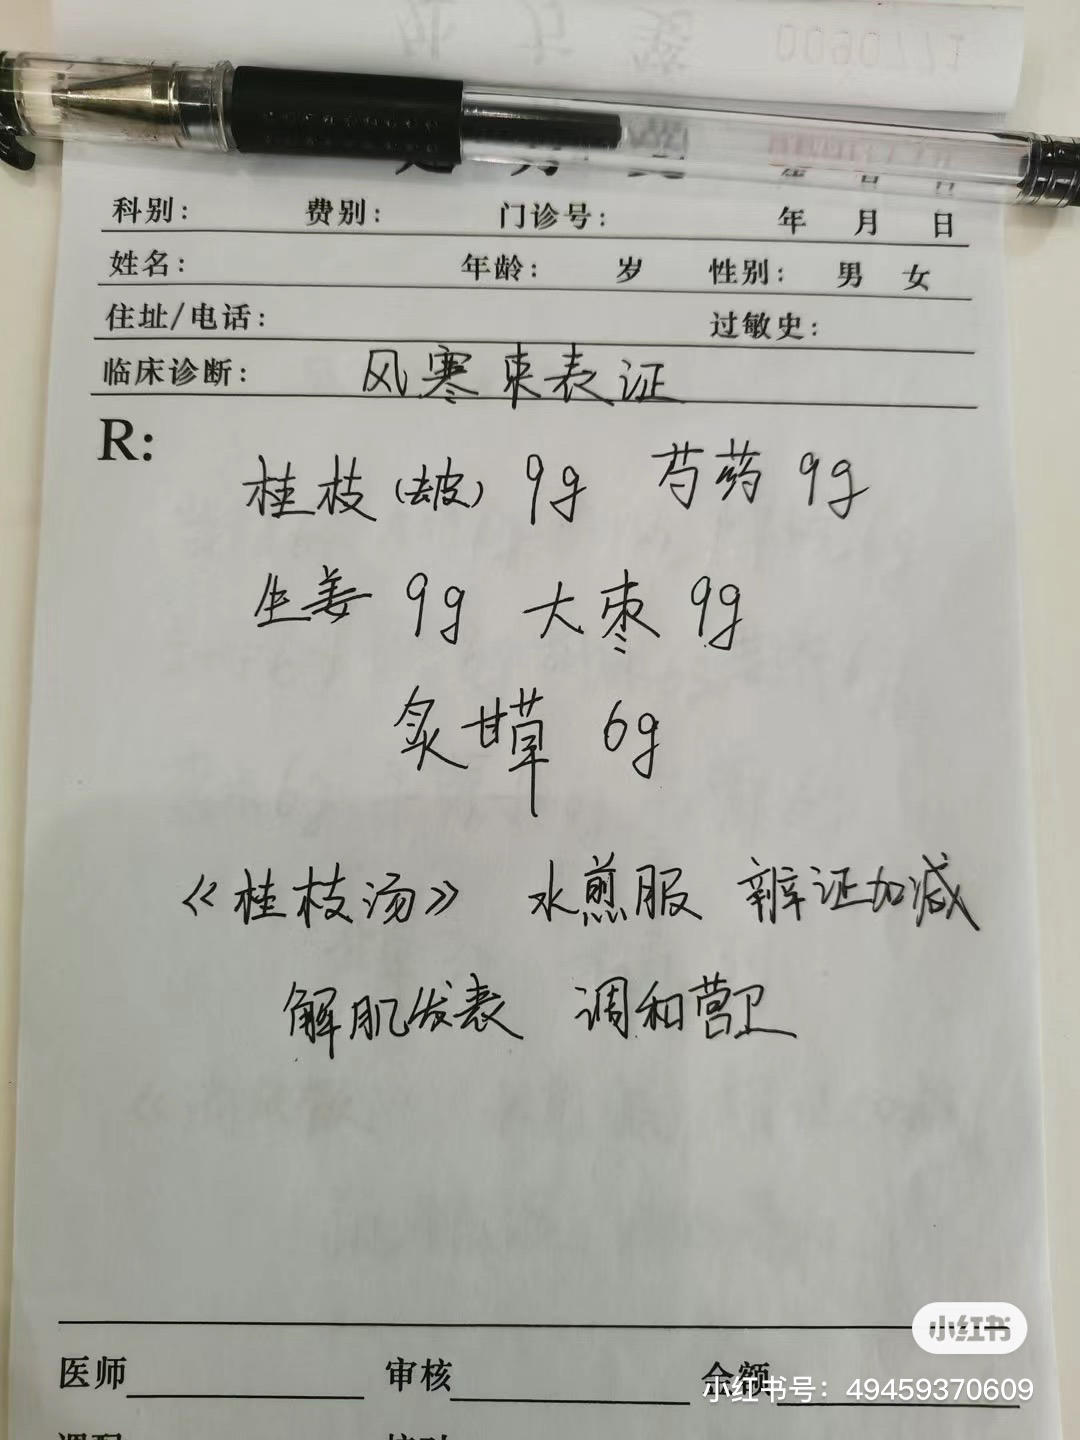 科别： 费别： 门诊号： 年 月 日
姓名： 年龄： 岁 性别： 男 女
住址/电话： 过敏史：
临床诊断： 风寒束表证
R:
桂枝（去皮） 9g 芍药 9g
生姜 9g 大枣 9g
炙甘草 6g
《桂枝汤》 水煎服 辨证加减
解肌发表 调和营卫
小红书
医师 审核 金额
小红书号：49459370609